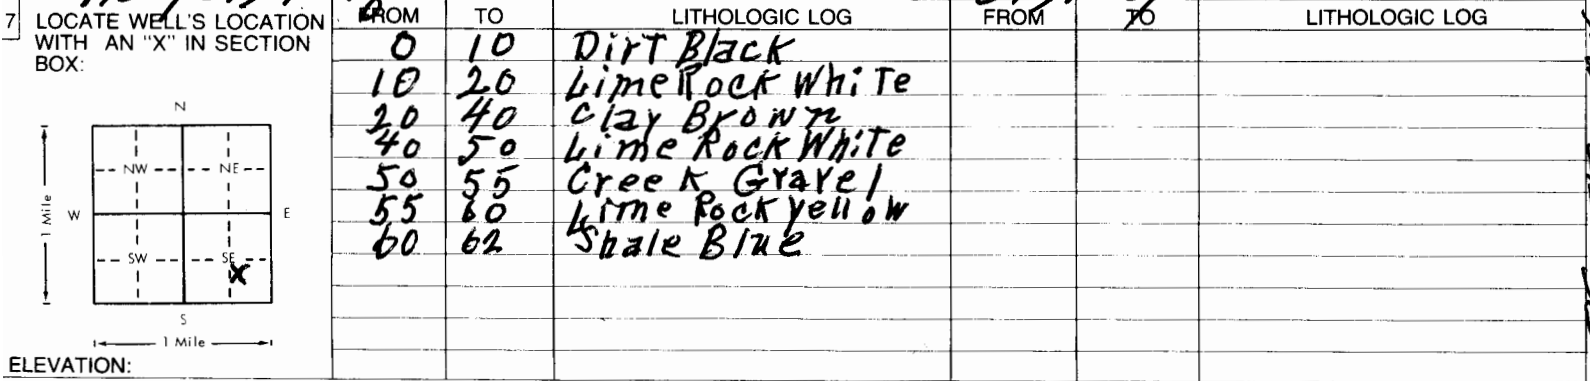 7 LOCATE WELL'S LOCATION
WITH AN "X" IN SECTION
BOX:
N
NW NE
W E
SW SE
X
S
1 Mile
1 Mile
ELEVATION:
FROM TO LITHOLOGIC LOG FROM TO LITHOLOGIC LOG
0 10 Dirt Black
10 20 Lime Rock White
20 40 Clay Brown
40 50 Lime Rock White
50 55 Creek Gravel
55 60 Lime Rock yellow
60 62 Shale Blue